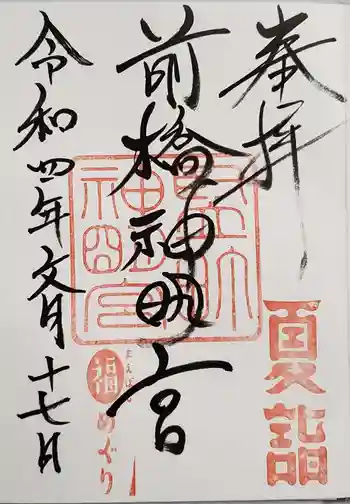 奉拝
前橋神明宮
令和四年文月十七日
夏詣
まえばし
福めぐり